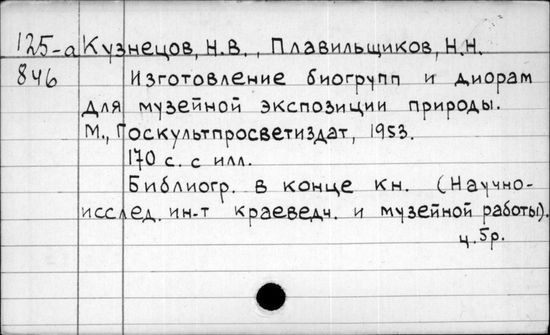 125-а Кузнецов, Н.В., Плавильщиков, Н.Н.
846 Изготовление биогрупп и диорам
для музейной экспозиции природы.
М., Госкультпросветиздат, 1953.
170 с. с илл.
Библиогр. в конце кн. (Научно-
исслед. ин-т краеведч. и музейной работы).
ц. 5р.